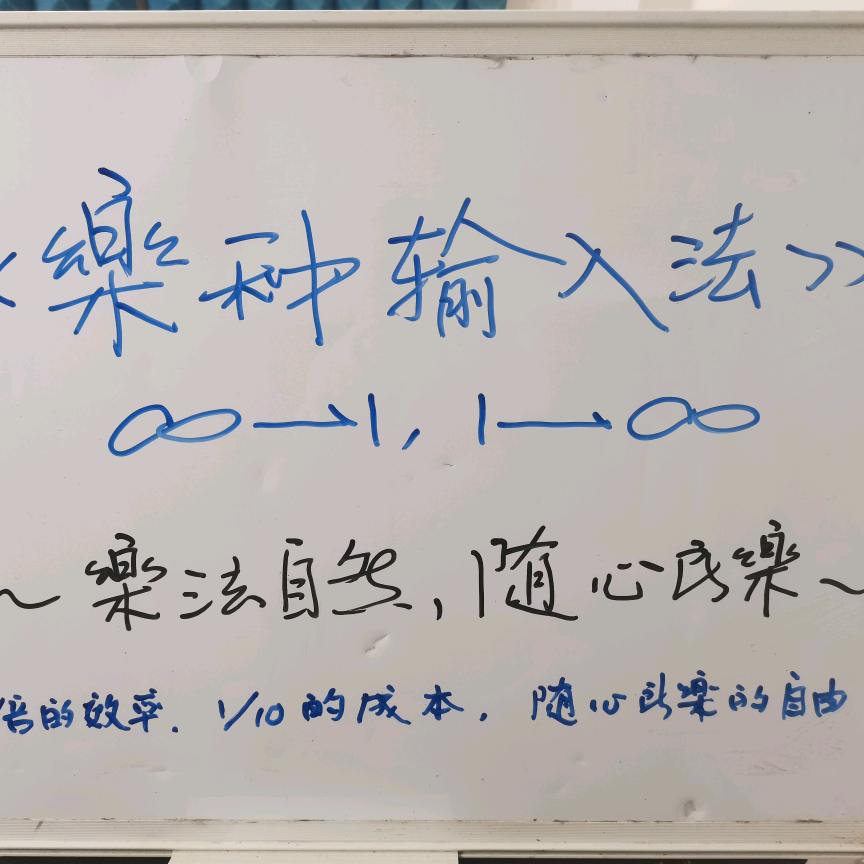 《樂种输入法》
∞→1,1→∞
~樂法自然,随心所樂~
倍的效率.1/10的成本,随心所樂的自由